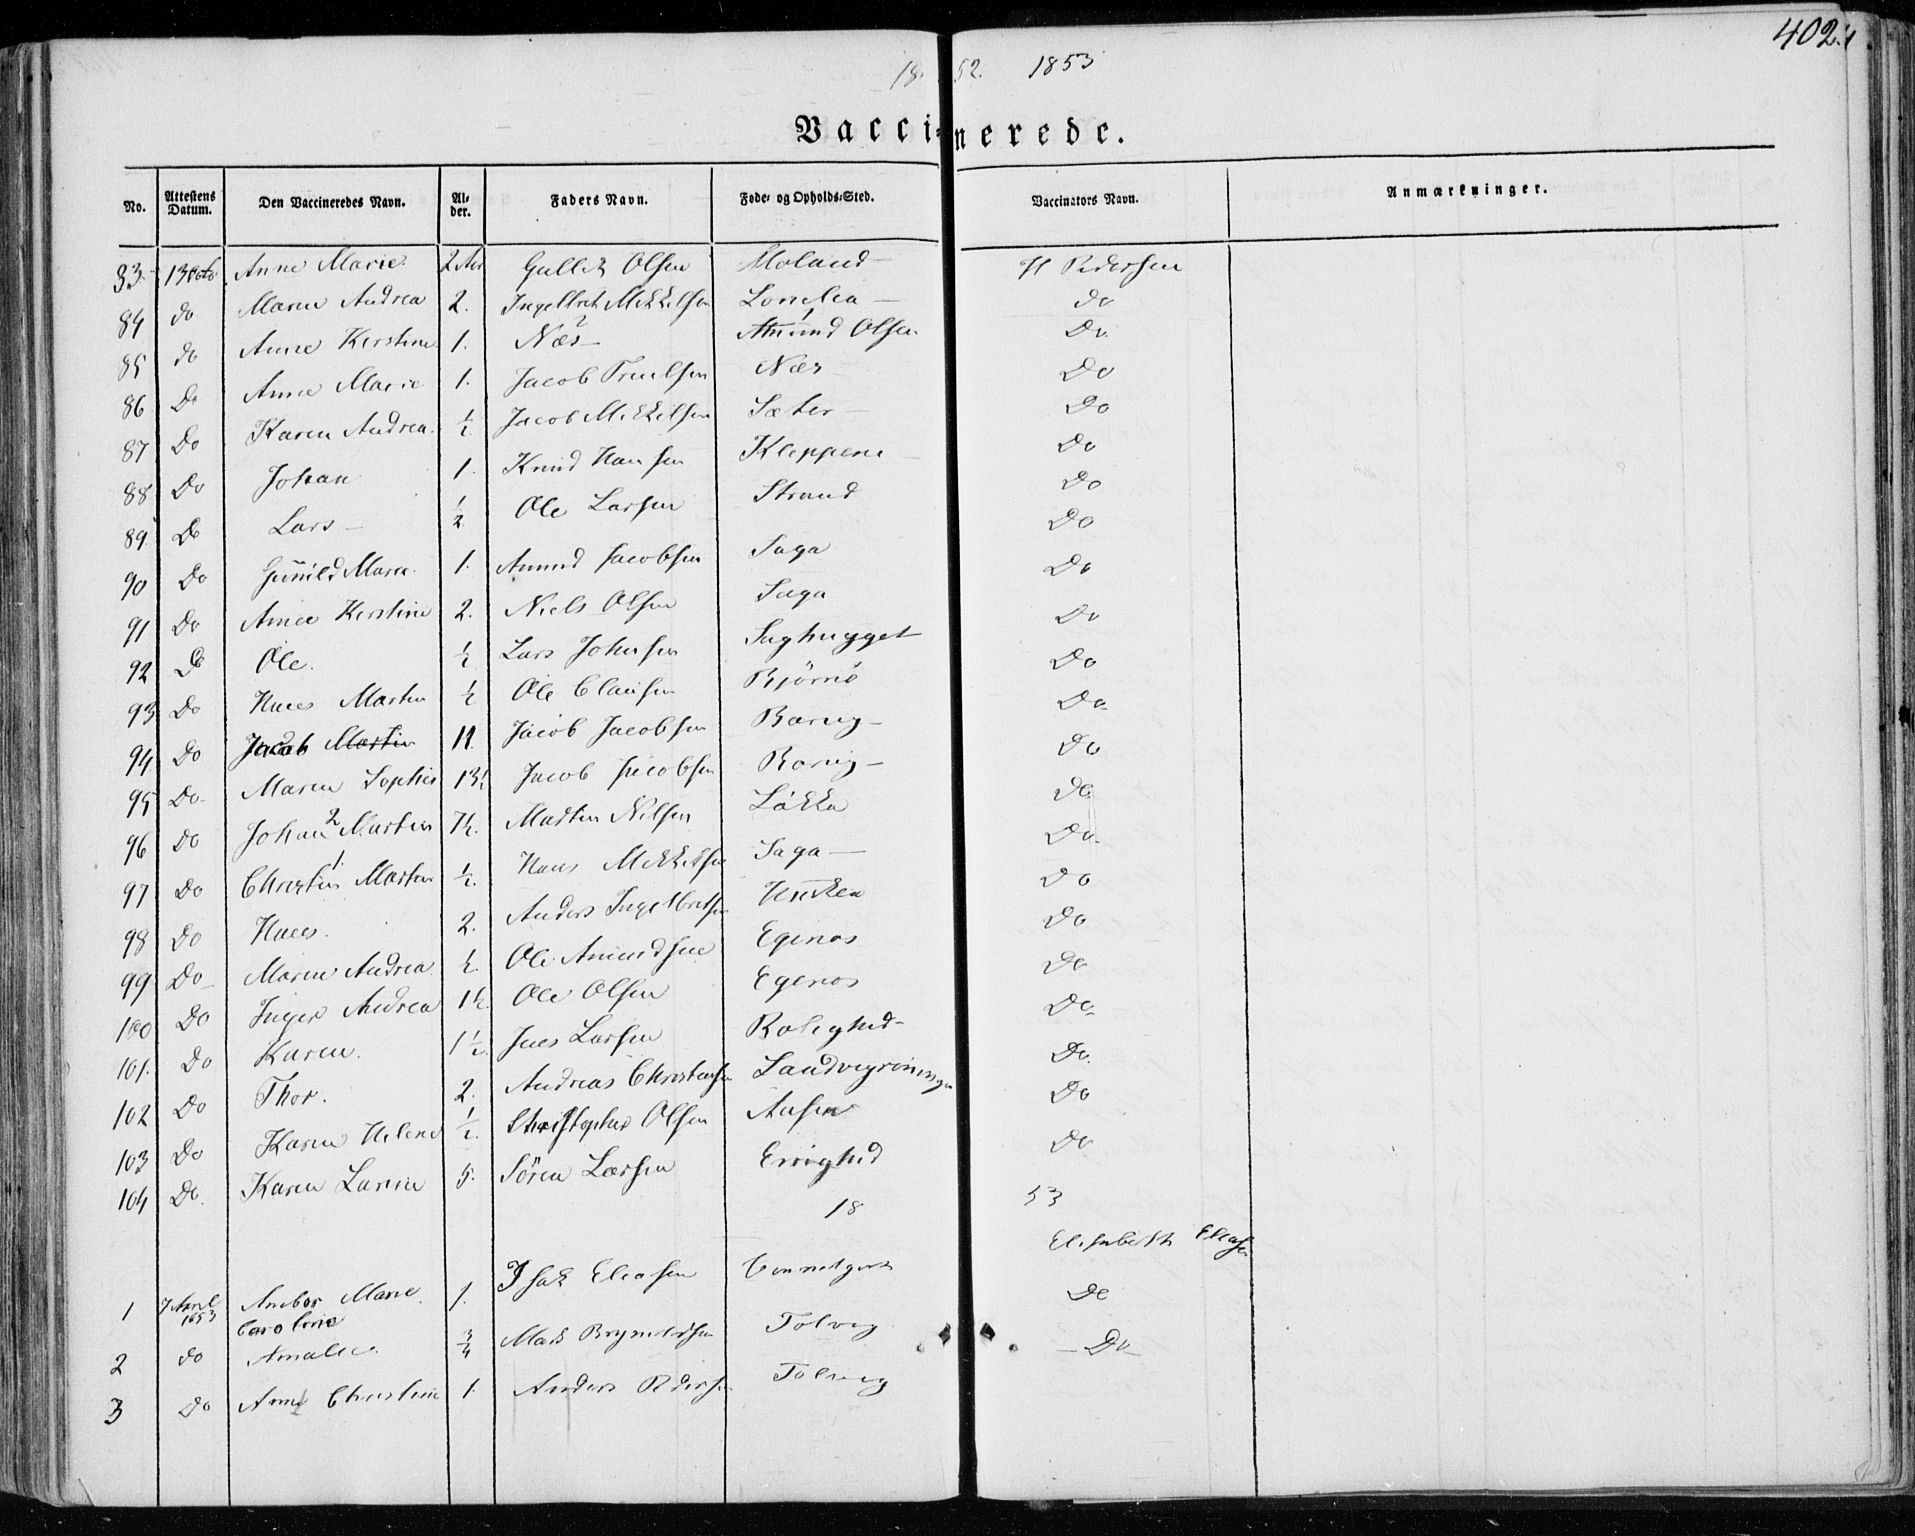 402.
18 52. 1853
Vaccinerede.
No. Attestens Datum. Den Vaccineredes Navn. Al-der. Faders Navn. Føde- og Opholds-Sted. Vaccinators Navn. Anmærkninger.
83. 13 Octo Anne Marie. 2 Aar Gullek Olsen Moland H Pedersen
84 do Maren Andrea 2. Ingelbret Mikkelsen Lonelia do
85 do Anne Kirstine 1. Næs 2 Amund Olsen 1 Do.
86 Do Anne Marie 1. Jacob Truelsen Næs Do
87 Do Karen Andrea. 1/2 Jacob Mikkelsen Sæter Do
88 Do Johan 1. Knud Hansen Kleppene Do
89. Do Lars 1/2 Ole Larsen Strand Do
90 Do Gunild Marie. 1. Amund Jacobsen Saga Do
91 Do Anne Kirstine 2. Niels Olsen Saga Do
92 Do Ole. 1/2 Lars Johnsen Saghugget Do
93 Do Hans Martin 1/2 Ole Clausen Bjørnø Do
94 Do Jacob Martin 11. Jacob Jacobsen Barng Do
95 Do Maren Sophie 13 1/2 Jacob Jacobsen Barng Do
96 Do Johan 2 Martin 7 1/2. Martin Nilsen Løkka Do
97 Do Christin 1 Marten 1/2. Hans Mikkelsen Saga Do
98 Do Hans. 2. Anders Ingelbretsen Do
99 Do Maren Andrea 1/2 Ole Amundsen Egenes Do
100 Do Inger Andrea 1 1/2. Ole Olsen Egenes Do
101. Do Karen. 1 1/2. Jens Larsen Rolighed Do
102 Do Thor. 2. Andreas Christensen Do
103 Do Karen Helene 1/2. Christopher Olsen Aasen Do
104 Do. Karen Lovise 5. Søren Larsen Do
18 53
1 7 April 1853 Anebor Marie 1. Isak Eliasen Elisabeth Eliasen
2 do Caroline Amalie. 3/4 Mads Brynildsen Tolvig Do
3 Do Anne Christine 1. Anders Pedersen Tolvig Do